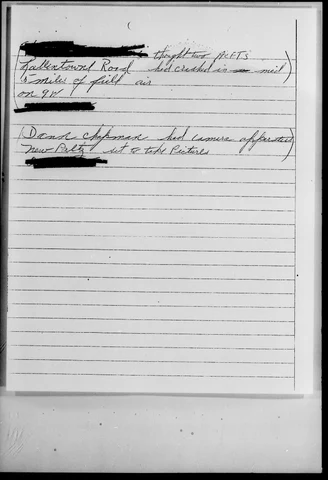 thought two ACFTS
Road had crashed in mid
5 miles of field air
on 9W
(Dann Chapman had camera apparatus)
New Paltz set to take Pictures